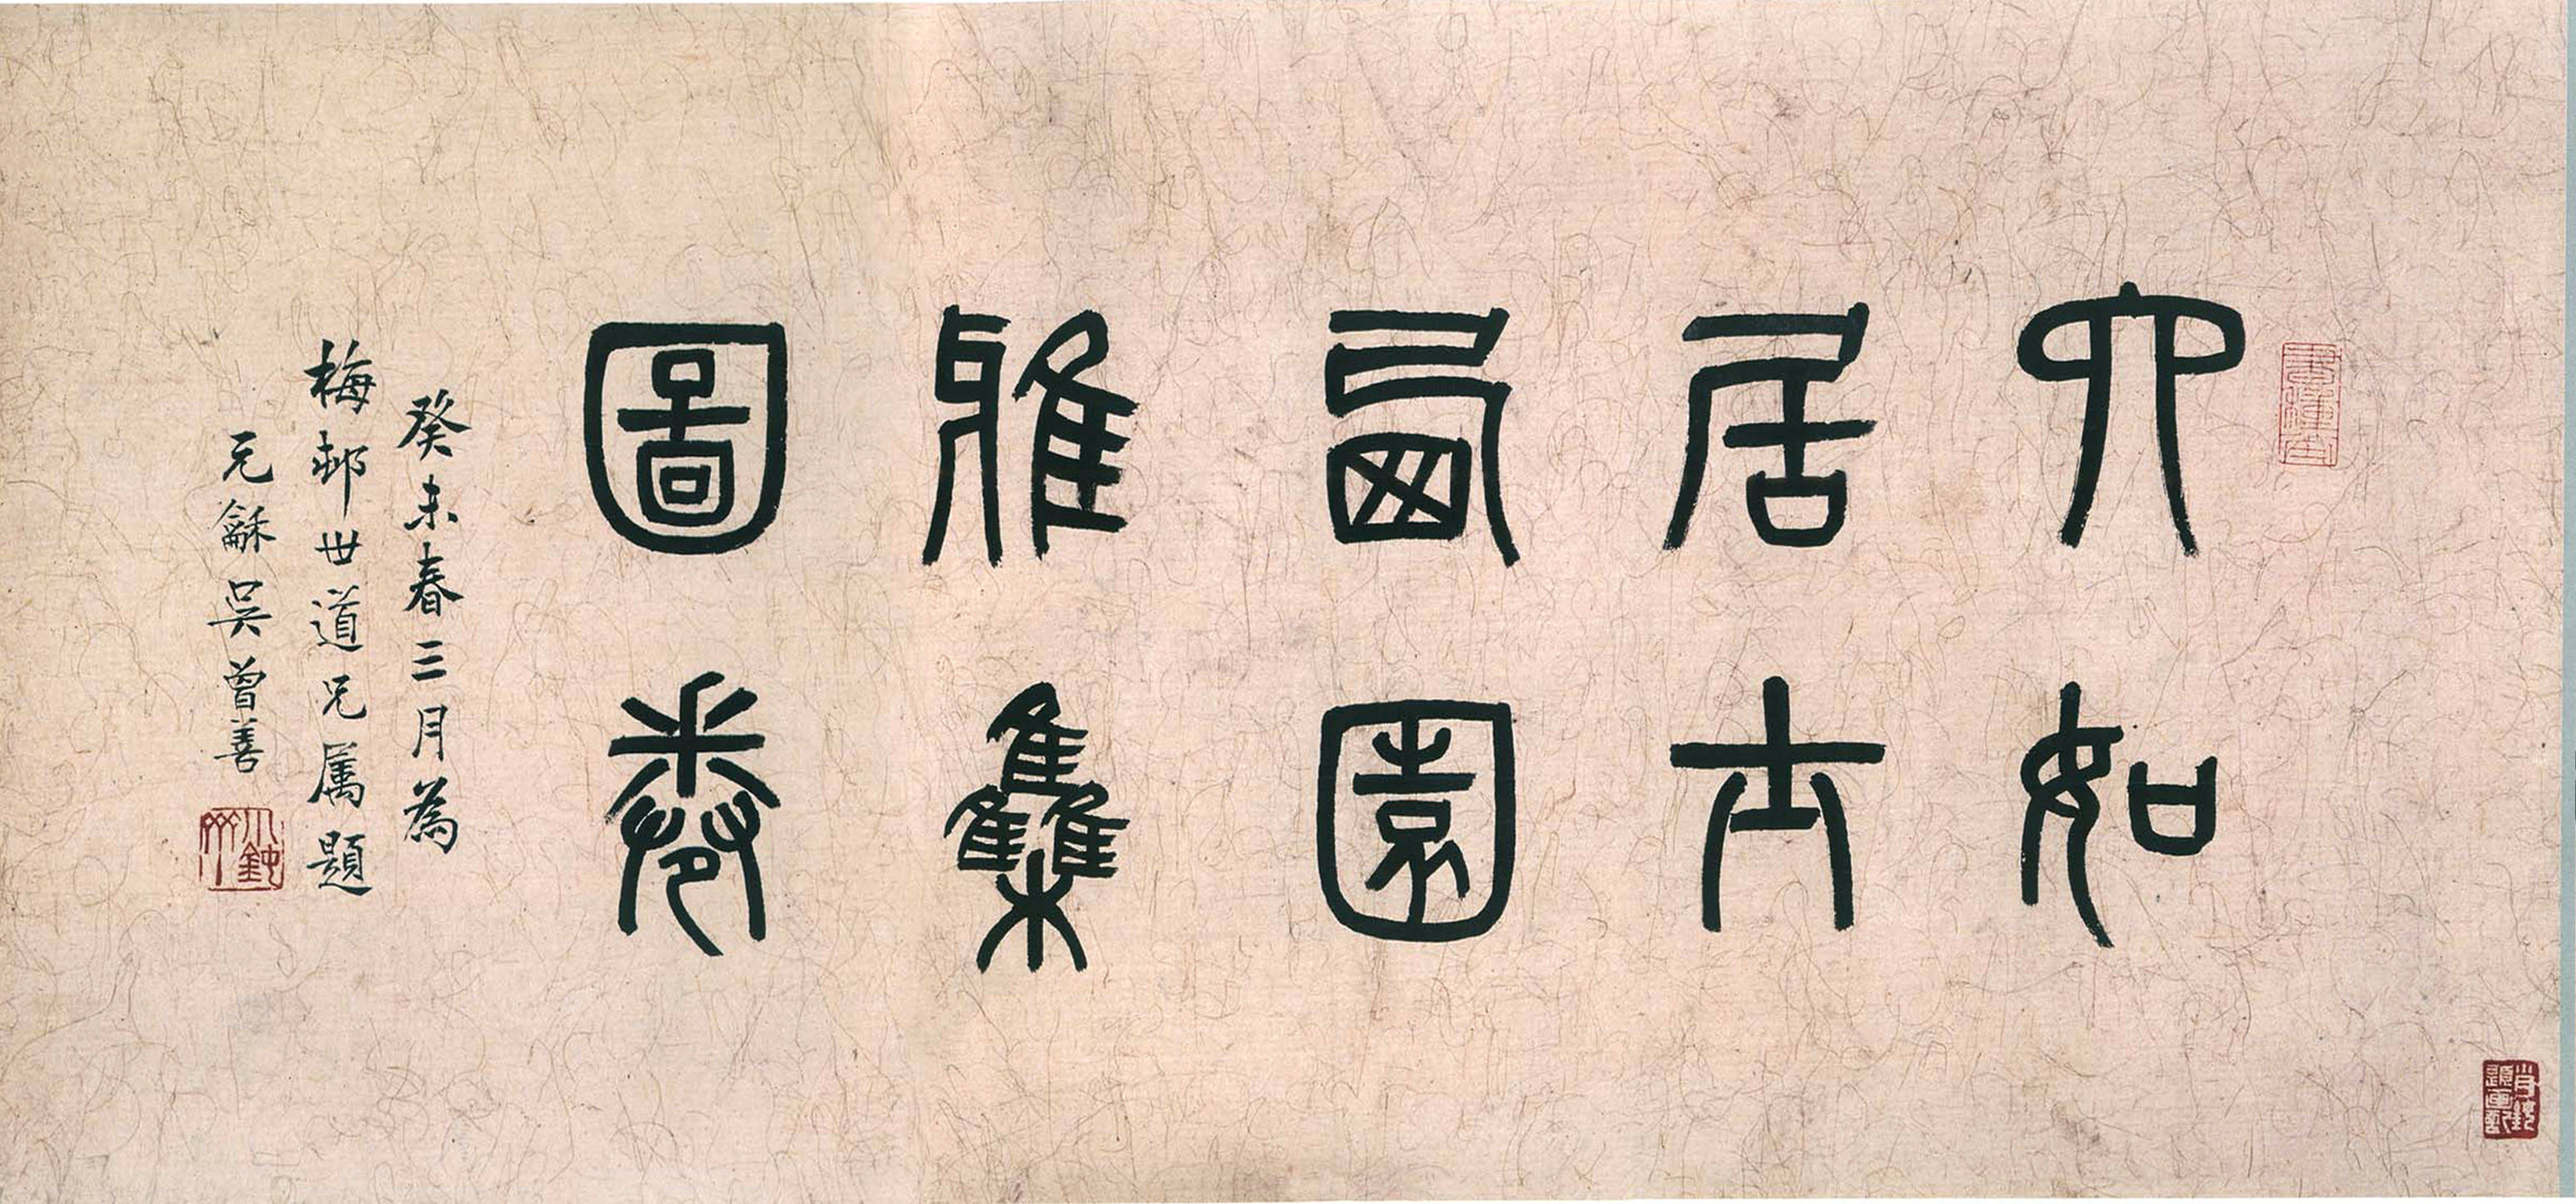 六如
居士
西園
雅集
圖卷
癸未春三月為
梅邨世道兄属題
元龢吳曾善